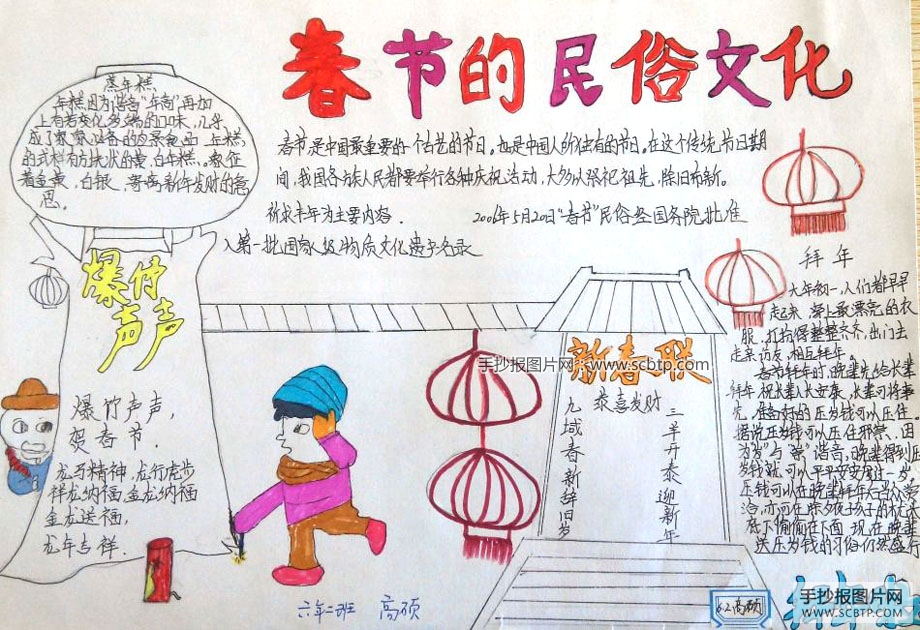 春节的民俗文化
蒸年糕
年糕因为谐音"年高"再加
上有着变化多端的口味,几乎
成了家家必备的应景食品.年糕
的式样有方块状的黄、白年糕,象征
着黄金、白银、寄寓新年发财的意
思.
春节是中国最重要的一个古艺的节日.也是中国人所独有的节日.在这个传统节日期
间,我国各族人民都要举行各种庆祝活动,大多以祭祀祖先,除旧布新.
祈求丰年为主要内容. 2006年5月20日"春节"民俗经国务院批准
入第一批国家级物质文化遗产名录
爆竹
声声
爆竹声声,
贺春节.
龙马精神,龙行虎步
祥龙纳福,金龙纳福
金龙送福,
龙年吉祥.
新春联
恭喜发财
三羊开泰迎新年
九域春新辞旧岁
拜年
大年初一,人们都早早
起来,穿上最漂亮的衣
服,打扮得整整齐齐,出门去
走亲访友,相互拜年。
春节拜年时,晚辈先给长辈
拜年,祝长辈人长寿安康,长辈可将事
先准备好的压岁钱可以压住.
据说压岁钱可以压住邪祟、因
为"岁"与"祟"谐音,晚辈得到压
岁钱就可以平平安安度过一岁,
压钱可以在晚辈拜年后
亦可在除夕夜孩子的枕头
底下偷偷在下面.现在晚辈
送压岁钱的习俗仍然盛行
六年二班 高硕
6.2高硕
手抄报图片网 www.scbtp.com
手抄报图片网
WWW.SCBTP.COM